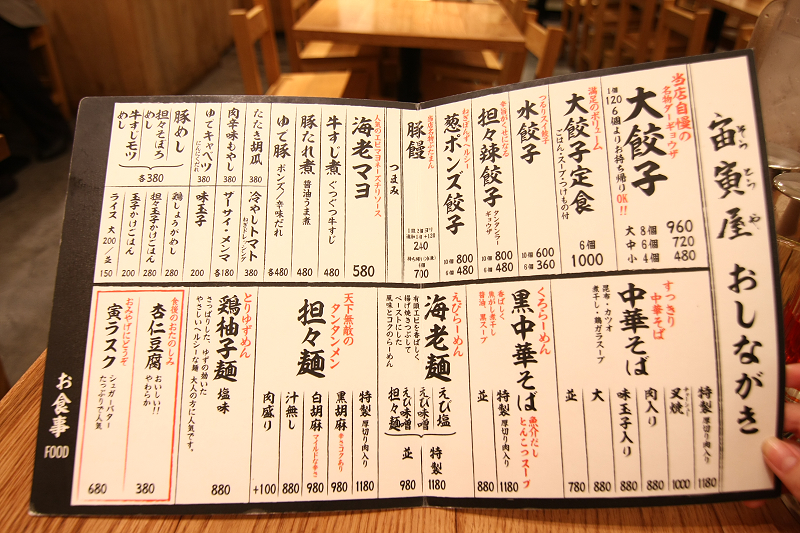 宙寅屋 おしながき
そら とら や
当店自慢の
名物ダーギョウザ
大餃子
1個120 6個よりお持ち帰りOK!!
大 8個 960
中 6個 720
小 4個 480
満足のボリューム
大餃子定食
ごはん・スープ・つけもの付
6個 1000
つるりスープ餃子
水餃子
10個 600
6個 360
辛旨がくせになる
担々辣餃子
タンタンラーギョウザ
10個 880
6個 480
ねぎぽんずでヘルシー
葱ポンズ餃子
10個 800
6個 480
豚饅
240
700
つまみ
人気のエビマヨネーズチリソース
海老マヨ
580
牛すじ煮 ぐつぐつ牛すじ
480
豚たれ煮 醤油うま煮
480
ゆで豚 ポンズ/辛味だれ
各480
たたき胡瓜 380
肉辛味もやし 380
ゆでキャベツ にんにくだれ 380
冷やしトマト 各380
ザーサイ・メンマ 各380
味玉子 180
200
豚めし
担々そぼろめし
牛すじモツめし
各380
鶏しょうがめし 280
担々玉子かけごはん 280
玉子かけごはん 200
ライス 大200/並 150
すっきり中華そば
中華そば
昆布・カツオ
煮干し・鶏ガラスープ
特製 厚切り肉入り 1180
叉焼 チャーシュー 1000
肉入り 880
味玉子入り 880
大 880
並 780
くろらーめん
黒中華そば
魚介だしとんこつスープ
香ばしく
焦がし煮干し
醤油、黒スープ
特製 厚切り肉入り 1180
並 880
えびらーめん
海老麺
有頭エビを香ばしく
揚げ焼きつぶして
ペーストにした
風味とコクのらーめん
えび塩
えび味噌
えび味噌担々麺
特製 1180
並 980
天下無敵の
タンタンメン
担々麺
特製 厚切り肉入り 1180
黒胡麻 辛さコクあり 980
白胡麻 マイルドな辛さ 980
汁無し 880
肉盛り +100
とりゆずめん
鶏柚子麺 塩味
さっぱりした、ゆずの効いた
やさしいヘルシーな麺 大人の方に人気です。
880
食後のおたのしみ
杏仁豆腐
おいしい!!
やわらか
380
おみやげにどうぞ
寅ラスク
シュガーバター
たっぷりで人気
680
お食事
FOOD